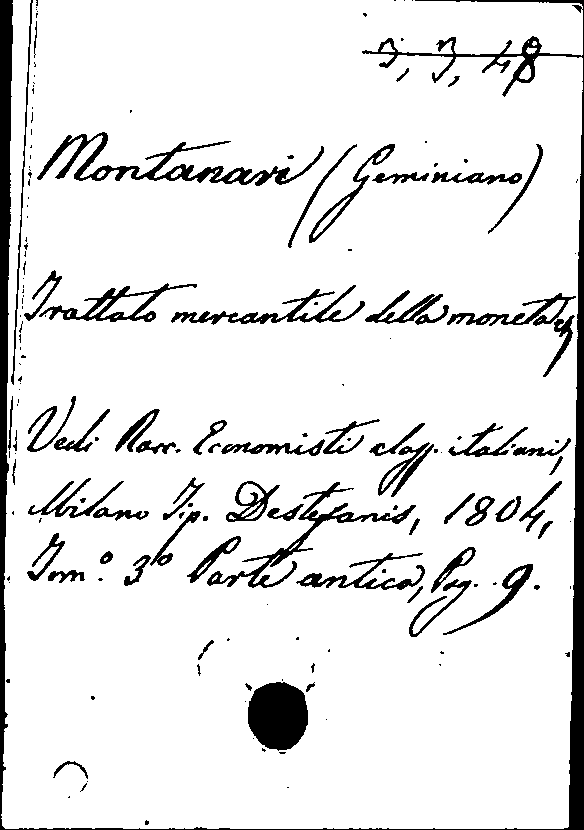 3, 3, 48
Montanari (Geminiano)
Trattato mercantile della moneta
Vedi Racc. Economisti class. italiani,
Milano Tip. Destefanis, 1804,
Tom.º 3º Parte antica, Pag. 9.